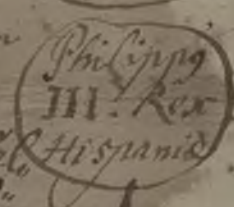 Philippus
III. Rex
Hispaniæ